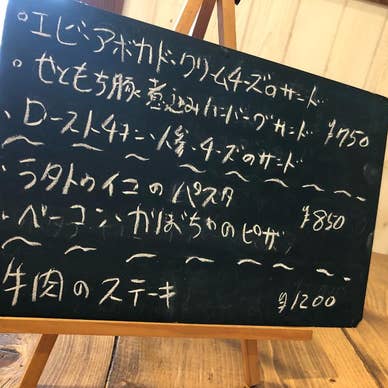 ・エビ・アボカド・クリームチーズのサンド
・せともち豚煮込みハンバーグサンド
・ローストチキン・人参・チーズのサンド ¥750
〜 〜 〜 〜 〜 〜 〜 〜
・ラタトゥイユのパスタ
・ベーコン・かぼちゃのピザ ¥850
〜 〜 〜 〜 〜 〜 〜 〜
牛肉のステーキ ¥1200